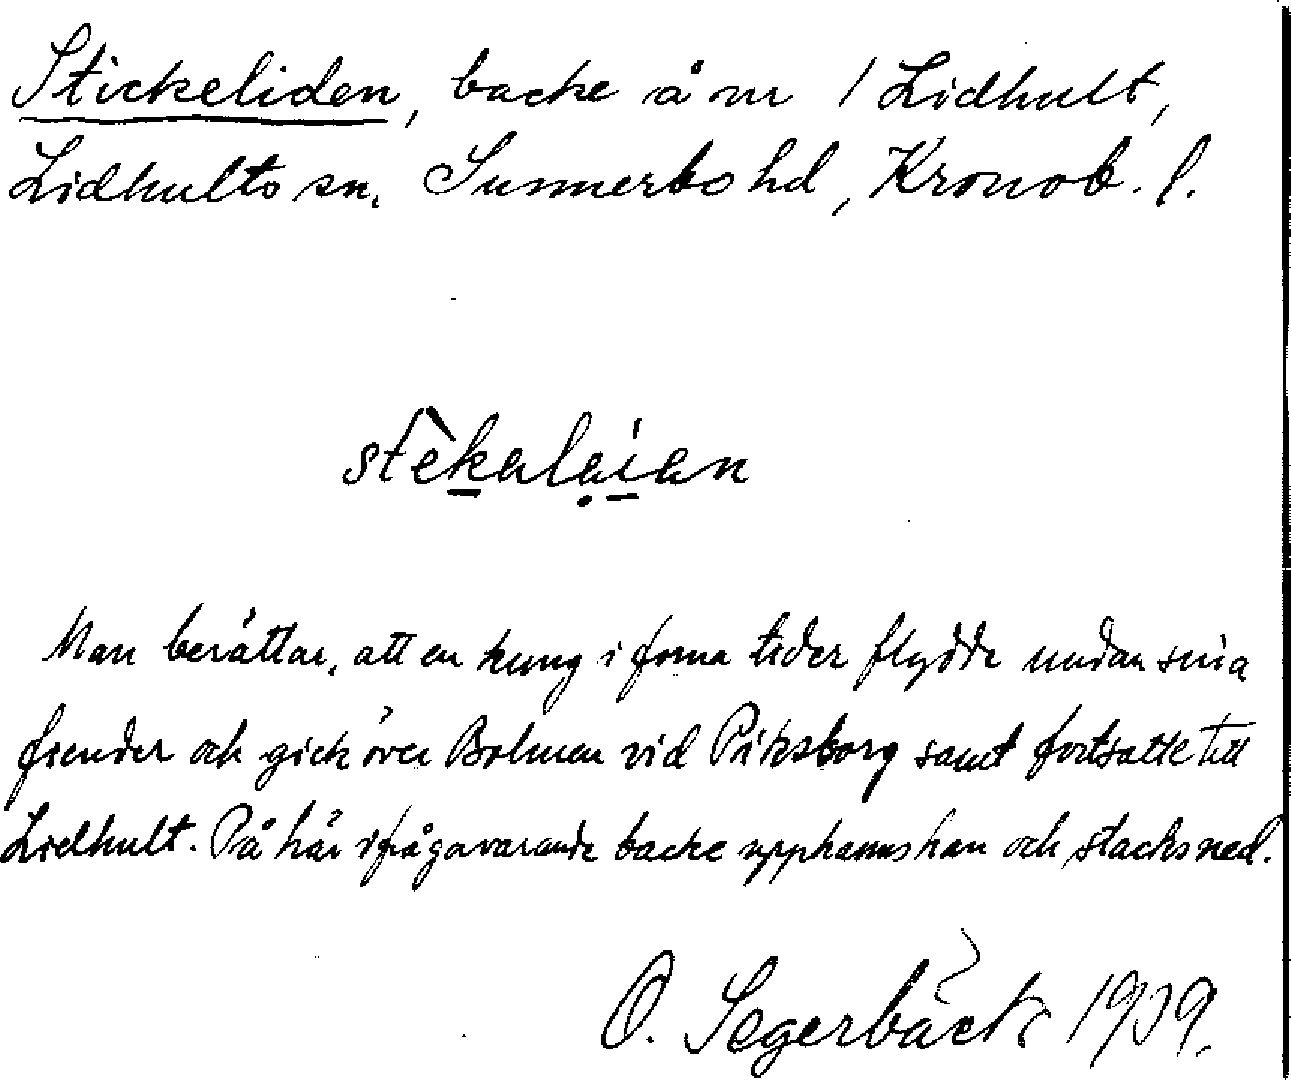 Stickeliden, backe å nr 1 Lidhult,
Lidhults sn, Sunnerbo hd, Kronob. l.
stèkalạian
Man berättar, att en kung i forna tider flydde undan sina
fiender och gick över Bolmen vid Piksborg samt fortsatte till
Lidhult. På här ifrågavarande backe upphanns han och stacks ned.
O. Segerbäck 1939.